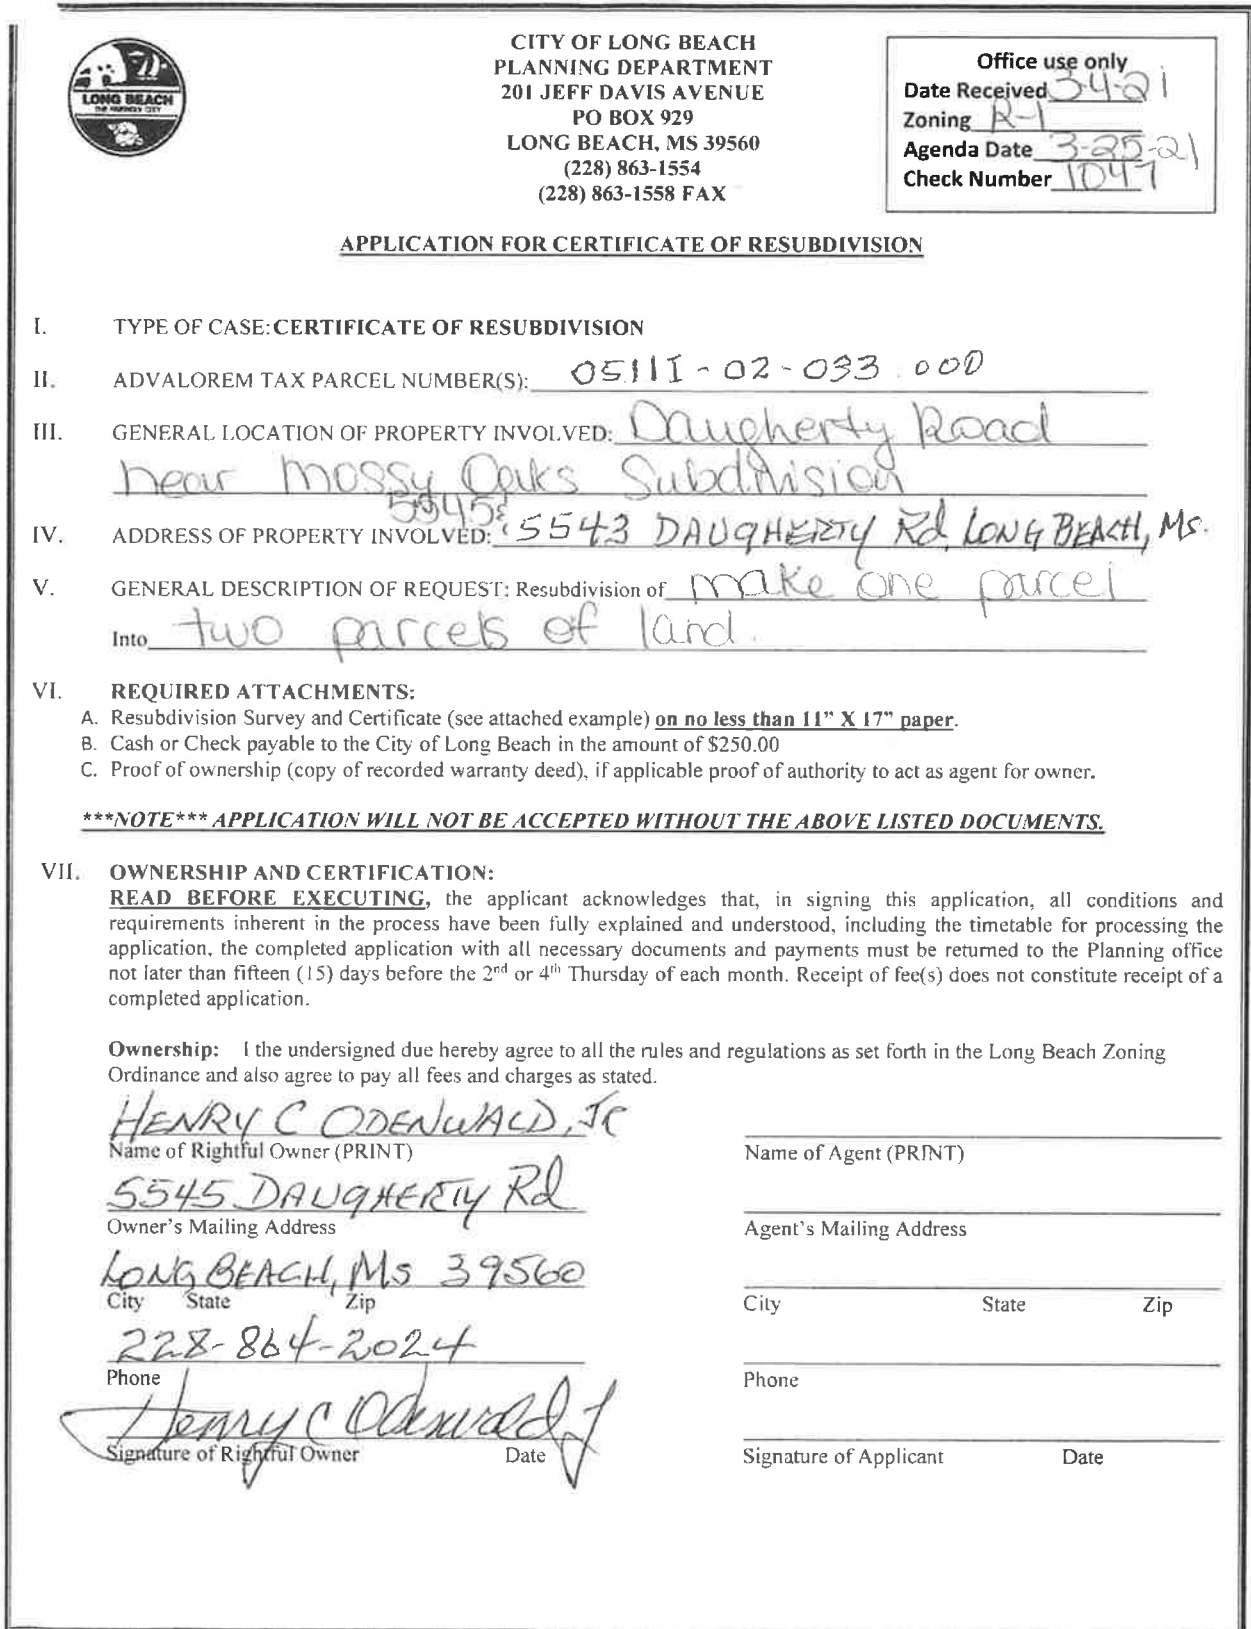 LONG BEACH
THE FRIENDLY CITY
CITY OF LONG BEACH
PLANNING DEPARTMENT
201 JEFF DAVIS AVENUE
PO BOX 929
LONG BEACH, MS 39560
(228) 863-1554
(228) 863-1558 FAX
Office use only
Date Received 3-4-21
Zoning R-1
Agenda Date 3-25-21
Check Number 1047
APPLICATION FOR CERTIFICATE OF RESUBDIVISION
I. TYPE OF CASE: CERTIFICATE OF RESUBDIVISION
II. ADVALOREM TAX PARCEL NUMBER(S): 0511I-02-033.000
III. GENERAL LOCATION OF PROPERTY INVOLVED: Daugherty Road
near Mossy Oaks Subdivision
IV. ADDRESS OF PROPERTY INVOLVED: 5545 & 5543 DAUGHERTY Rd, LONG BEACH, Ms.
V. GENERAL DESCRIPTION OF REQUEST: Resubdivision of make one parcel
Into two parcels of land.
VI. REQUIRED ATTACHMENTS:
A. Resubdivision Survey and Certificate (see attached example) on no less than 11" X 17" paper.
B. Cash or Check payable to the City of Long Beach in the amount of $250.00
C. Proof of ownership (copy of recorded warranty deed), if applicable proof of authority to act as agent for owner.
***NOTE*** APPLICATION WILL NOT BE ACCEPTED WITHOUT THE ABOVE LISTED DOCUMENTS.
VII. OWNERSHIP AND CERTIFICATION:
READ BEFORE EXECUTING, the applicant acknowledges that, in signing this application, all conditions and
requirements inherent in the process have been fully explained and understood, including the timetable for processing the
application, the completed application with all necessary documents and payments must be returned to the Planning office
not later than fifteen (15) days before the 2nd or 4th Thursday of each month. Receipt of fee(s) does not constitute receipt of a
completed application.
Ownership: I the undersigned due hereby agree to all the rules and regulations as set forth in the Long Beach Zoning
Ordinance and also agree to pay all fees and charges as stated.
HENRY C ODENWALD, JR
Name of Rightful Owner (PRINT)
Name of Agent (PRINT)
5545 DAUGHERTY Rd
Owner's Mailing Address
Agent's Mailing Address
LONG BEACH, Ms 39560
City State Zip
City State Zip
228-864-2024
Phone
Phone
Henry C Odenwald J
Signature of Rightful Owner Date
Signature of Applicant Date